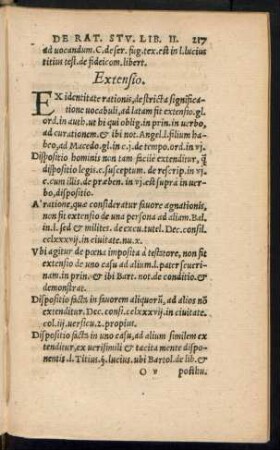 DE RAT. STV. LIB. II. 217
ad uocandum. C. de ser. fug. tex. est in l. lucius
titius test. de fideicom. libert.
Extensio.
EX identitate rationis, de stricta significa-
tione uocabuli, ad latam fit extensio. gl.
ord. in auth. ut hi qui oblig. in prin. in uerbo,
ad curationem. & ibi not. Angel. l. filium ha-
beo, ad Macedo. gl. in c. j. de tempo. ord. in vj.
Dispositio hominis non tam facile extenditur, q̃
dispositio legis. c. susceptum. de rescrip. in vj.
c. cum illis. de præben. in vj. est supra in uer-
bo, dispositio.
A' ratione, quæ consideratur fauore agnationis,
non fit extensio de una persona ad aliam. Bal.
in l. sed & milites. de excu. tutel. Dec. consil.
cclxxxvij. in ciuitate. nu. x.
Vbi agitur de pœna imposita à testatore, non fit
extensio de uno casu ad alium. l. pater seueri-
nam. in prin. & ibi Bart. not. de conditio. &
demonstrat.
Dispositio facta in fauorem aliquorũ, ad alios nõ
extenditur. Dec. consi. cclxxxvij. in ciuitate.
col. iij. uersicu. 2. propius.
Dispositio facta in uno casu, ad alium similem ex
tenditur, ex uerisimili & tacita mente dispo-
nentis. l. Titius. §. lucius. ubi Bartol. de lib. &
O v posthu.